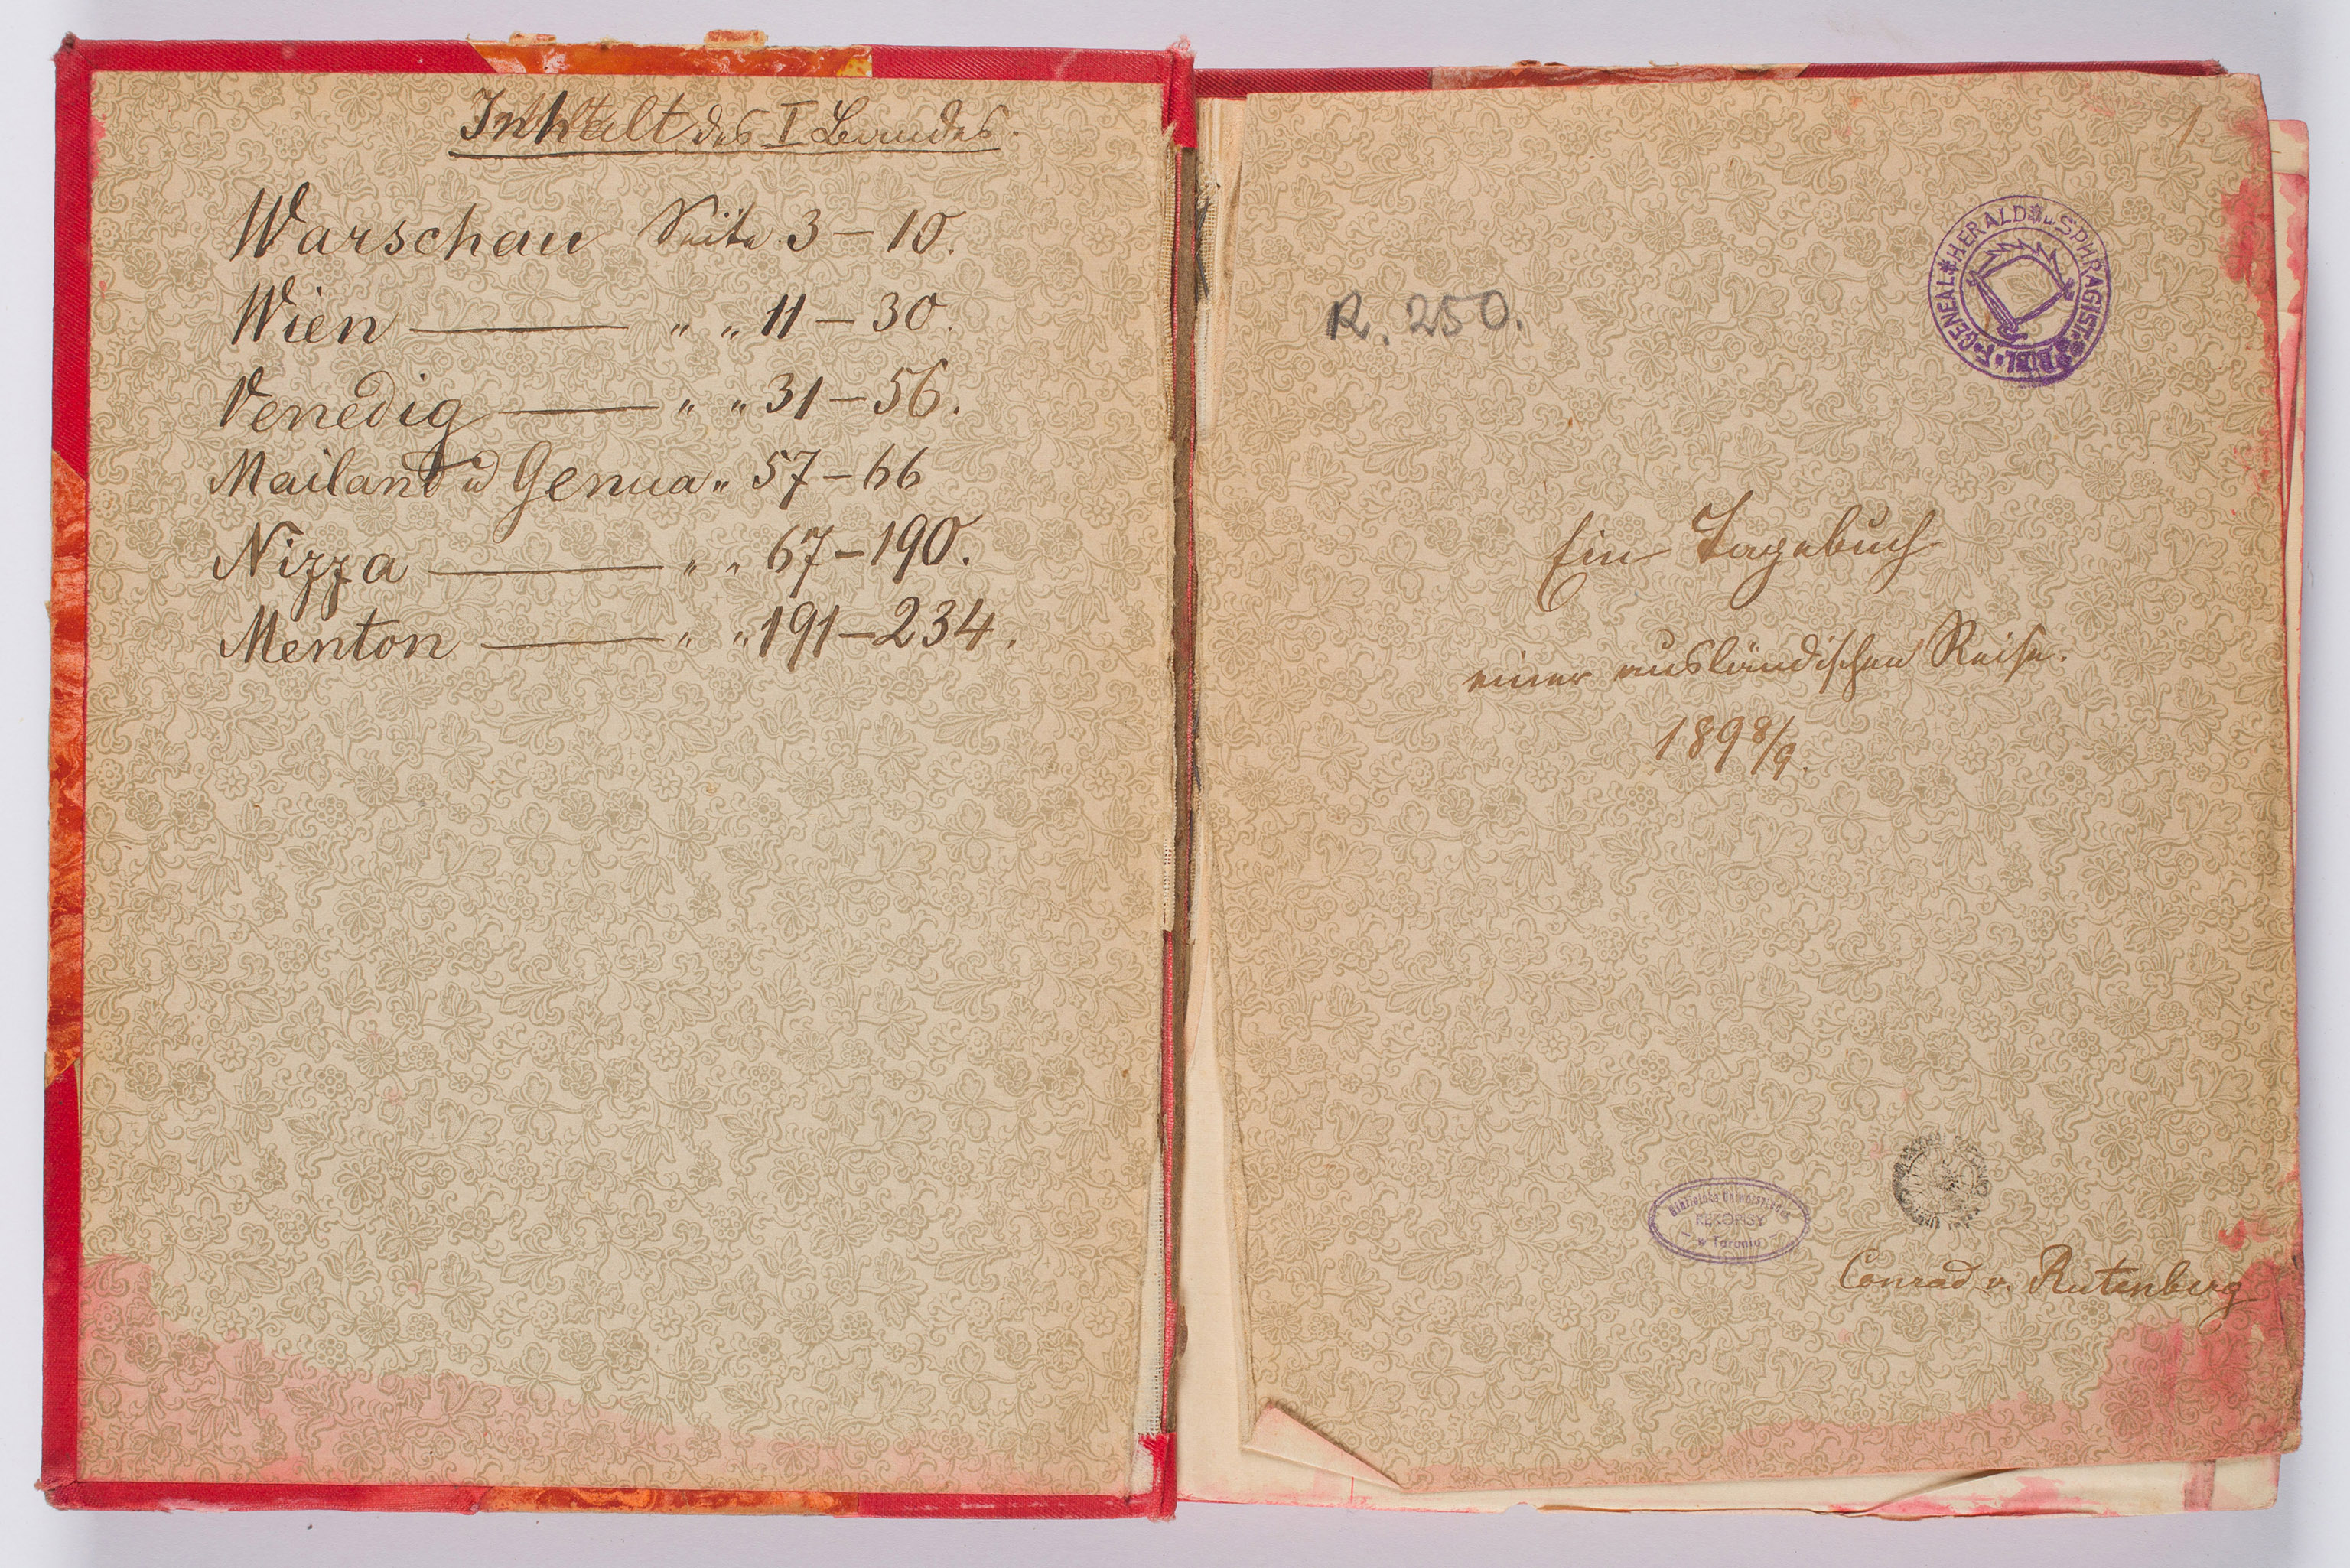 Inhalt des I Bandes.
Warschau Seite 3 – 10.
Wien — „ „ 11 – 30.
Venedig — „ „ 31 – 56.
Mailand u Genua „ 57 – 66
Nizza — „ „ 67 – 190.
Menton — „ „ 191 – 234.
1
GENEAL.*HERALD*u.SPHRAGIST.*BIBL.F.
R. 250.
Ein Tagebuch
einer ausländischen Reise.
1898/9.
Biblioteka Uniwersytecka
RĘKOPISY
w Toruniu
Conrad v. Rutenberg